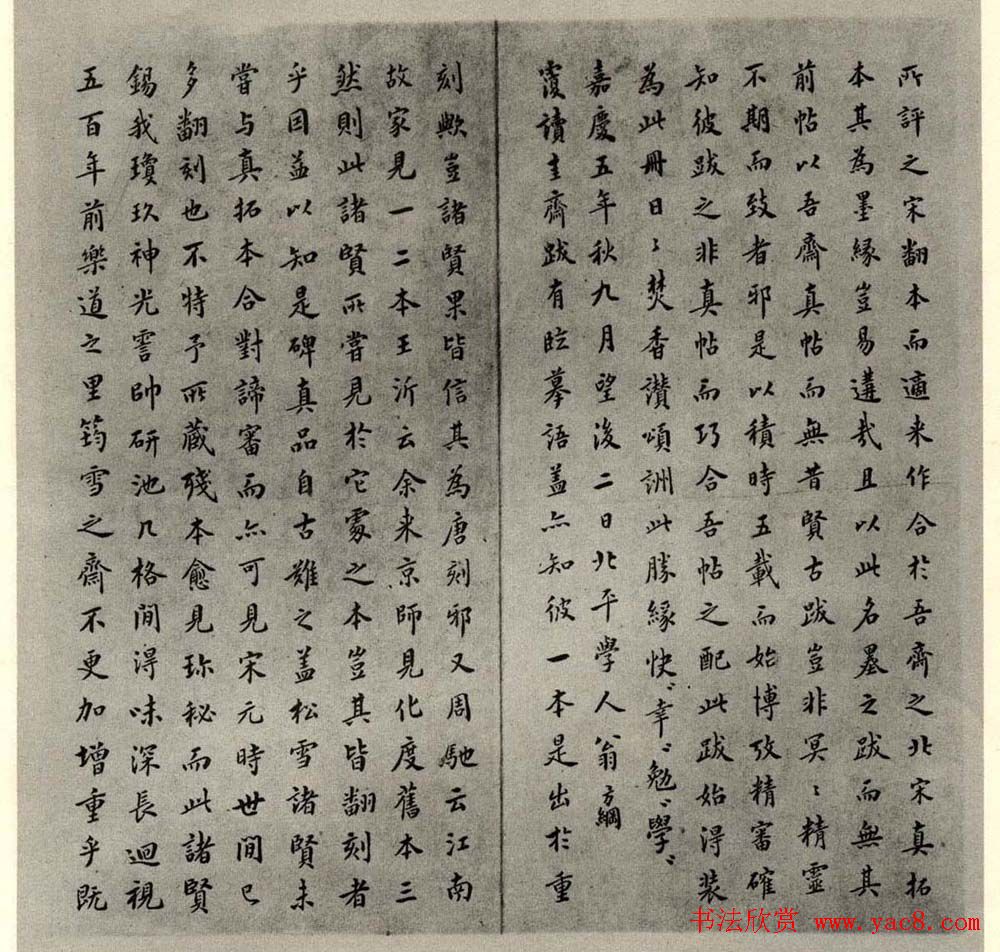 所評之宋翻本而適来作合於吾齋之北宋真拓
本其為墨緣豈易遘哉且以此名墨之跋而無其
前帖以吾齋真帖而無昔賢古跋豈非冥〻精靈
不期而致者邪是以積時五載而始博攷精審確
知彼跋之非真帖而巧合吾帖之配此跋始得装
為此冊日〻焚香讚頌詶此勝緣快〻幸〻勉〻學〻
嘉慶五年秋九月望後二日北平學人翁方綱
覆讀圭齋跋有臨摹語盖亦知彼一本是出於重
刻歟豈諸賢果皆信其為唐刻邪又周馳云江南
故家見一二本王沂云余来京師見化度舊本三
然則此諸賢所嘗見於它處之本豈其皆翻刻者
乎因益以知是碑真品自古難之盖松雪諸賢未
嘗与真拓本合對諦審而亦可見宋元時世間已
多翻刻也不特予所藏殘本愈見珎秘而此諸賢
錫我瓊玖神光雲帥研池几格間得味深長迴視
五百年前樂道之里筠雪之齋不更加增重乎既
书法欣赏 www.yac8.com